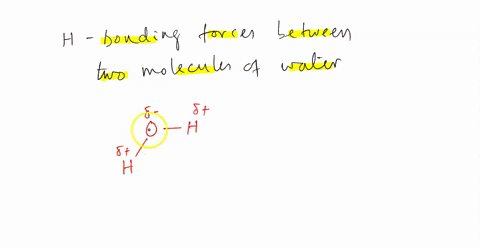 H - bonding forces between
two molecules of water
δ- δ+
O - H
δ+
H